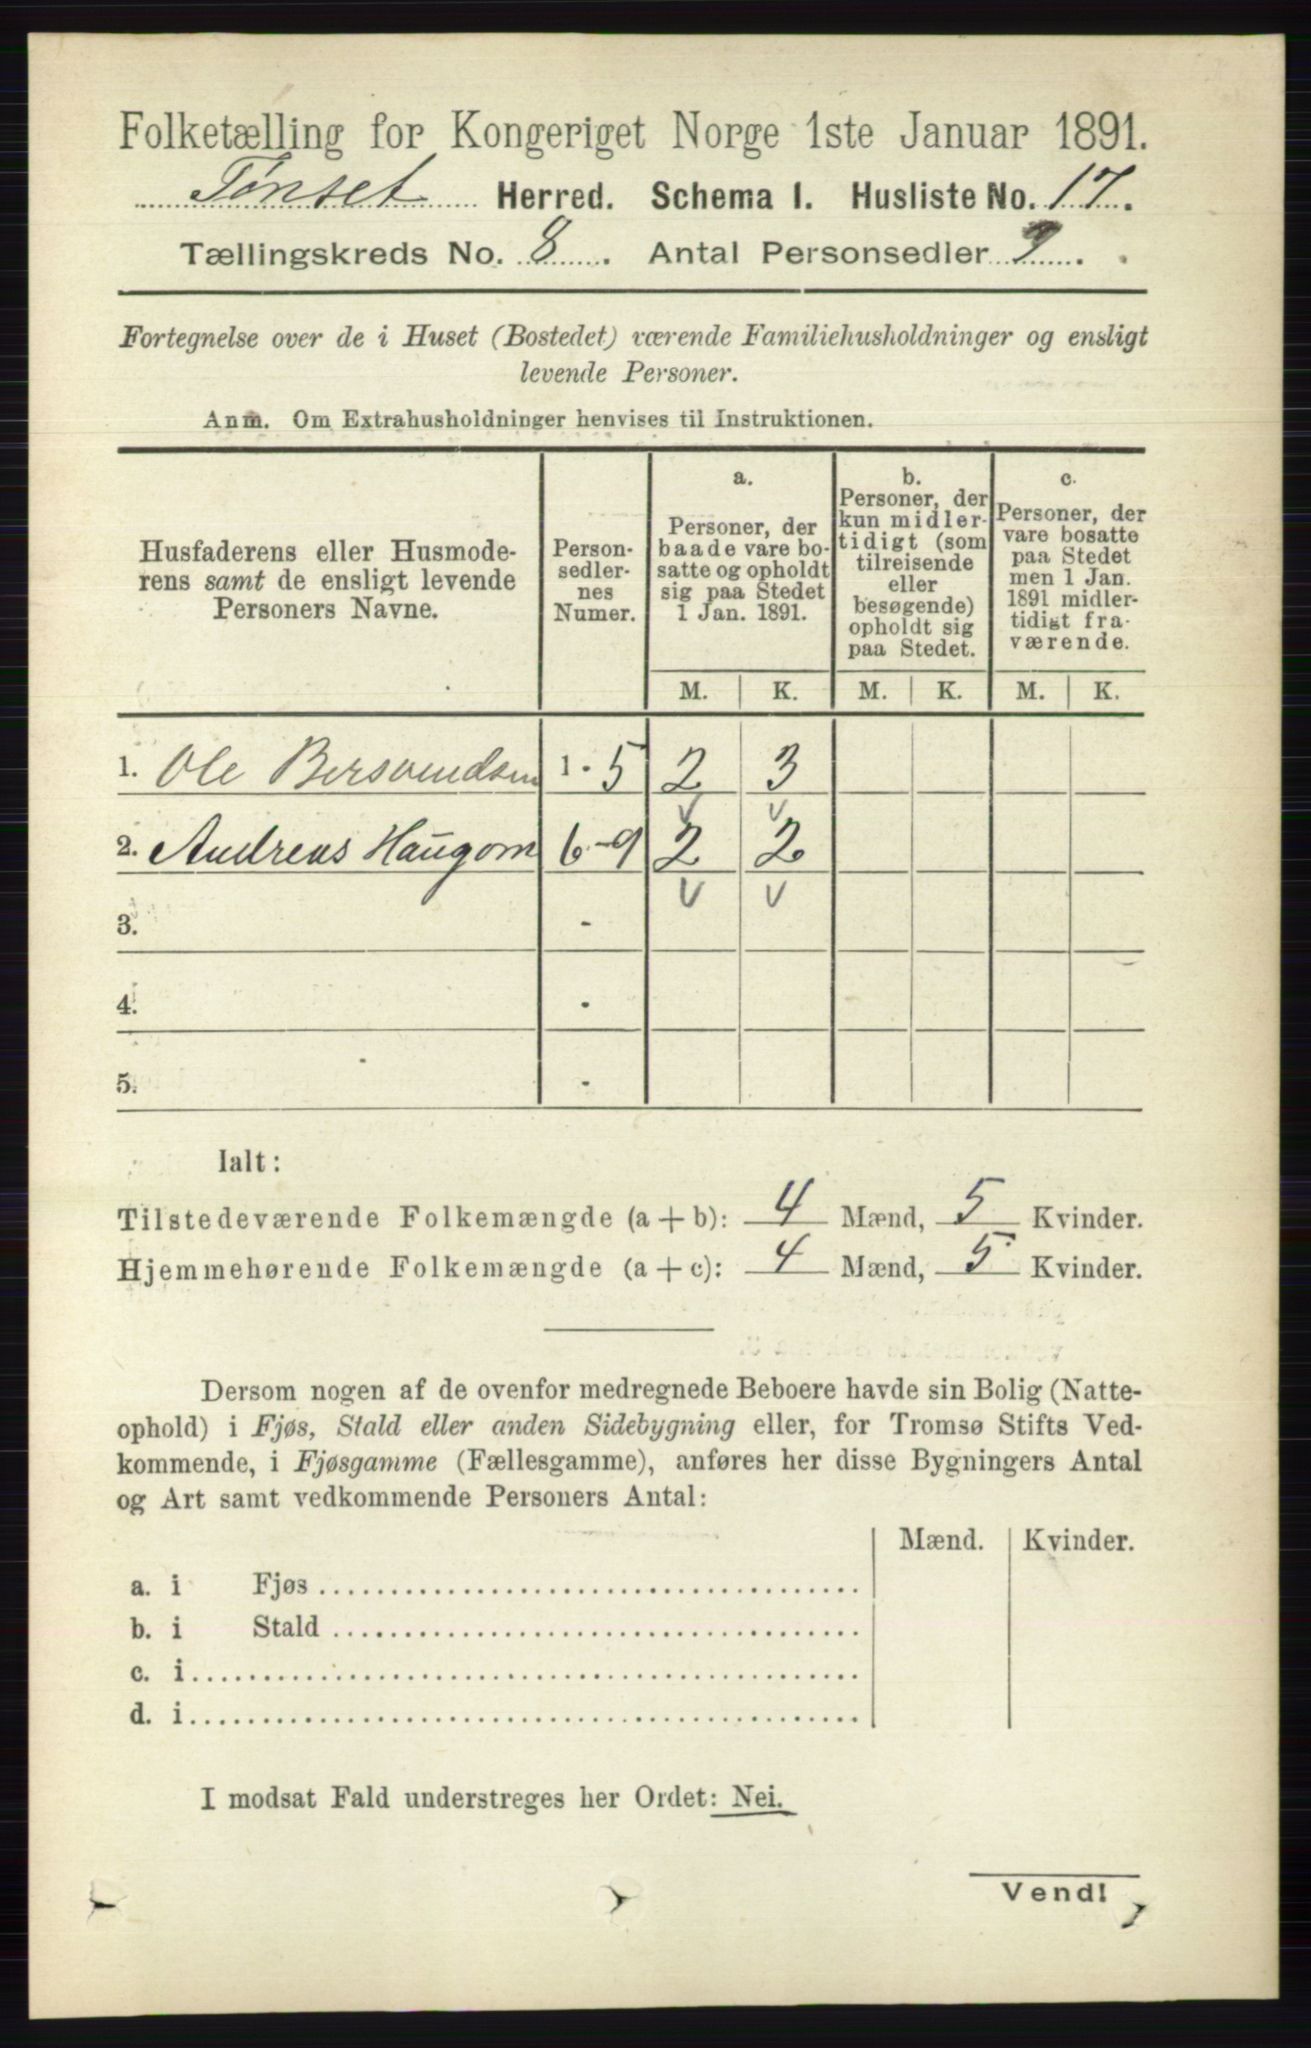 Folketælling for Kongeriget Norge 1ste Januar 1891.
Tønset Herred. Schema I. Husliste No. 17.
Tællingskreds No. 8. Antal Personsedler 9.
Fortegnelse over de i Huset (Bostedet) værende Familiehusholdninger og ensligt
levende Personer.
Anm. Om Extrahusholdninger henvises til Instruktionen.
Husfaderens eller Husmode-
rens samt de ensligt levende
Personers Navne.
Person-
sedler-
nes
Numer.
a.
Personer, der
baade vare bo-
satte og opholdt
sig paa Stedet
1 Jan. 1891.
b.
Personer, der
kun midler-
tidigt (som
tilreisende
eller
besøgende)
opholdt sig
paa Stedet.
c.
Personer, der
vare bosatte
paa Stedet
men 1 Jan.
1891 midler-
tidigt fra-
værende.
M. K. M. K. M. K.
1. Ole Bersvendsen 1 - 5 2 3
2. Andreas Haugom 6 - 9 2 2
3. -
4. -
5. -
Ialt:
Tilstedeværende Folkemængde (a + b): 4 Mænd, 5 Kvinder.
Hjemmehørende Folkemængde (a + c): 4 Mænd, 5 Kvinder.
Dersom nogen af de ovenfor medregnede Beboere havde sin Bolig (Natte-
ophold) i Fjøs, Stald eller anden Sidebygning eller, for Tromsø Stifts Ved-
kommende, i Fjøsgamme (Fællesgamme), anføres her disse Bygningers Antal
og Art samt vedkommende Personers Antal:
Mænd. Kvinder.
a. i Fjøs
b. i Stald
c. i
d. i
I modsat Fald understreges her Ordet: Nei.
Vend!